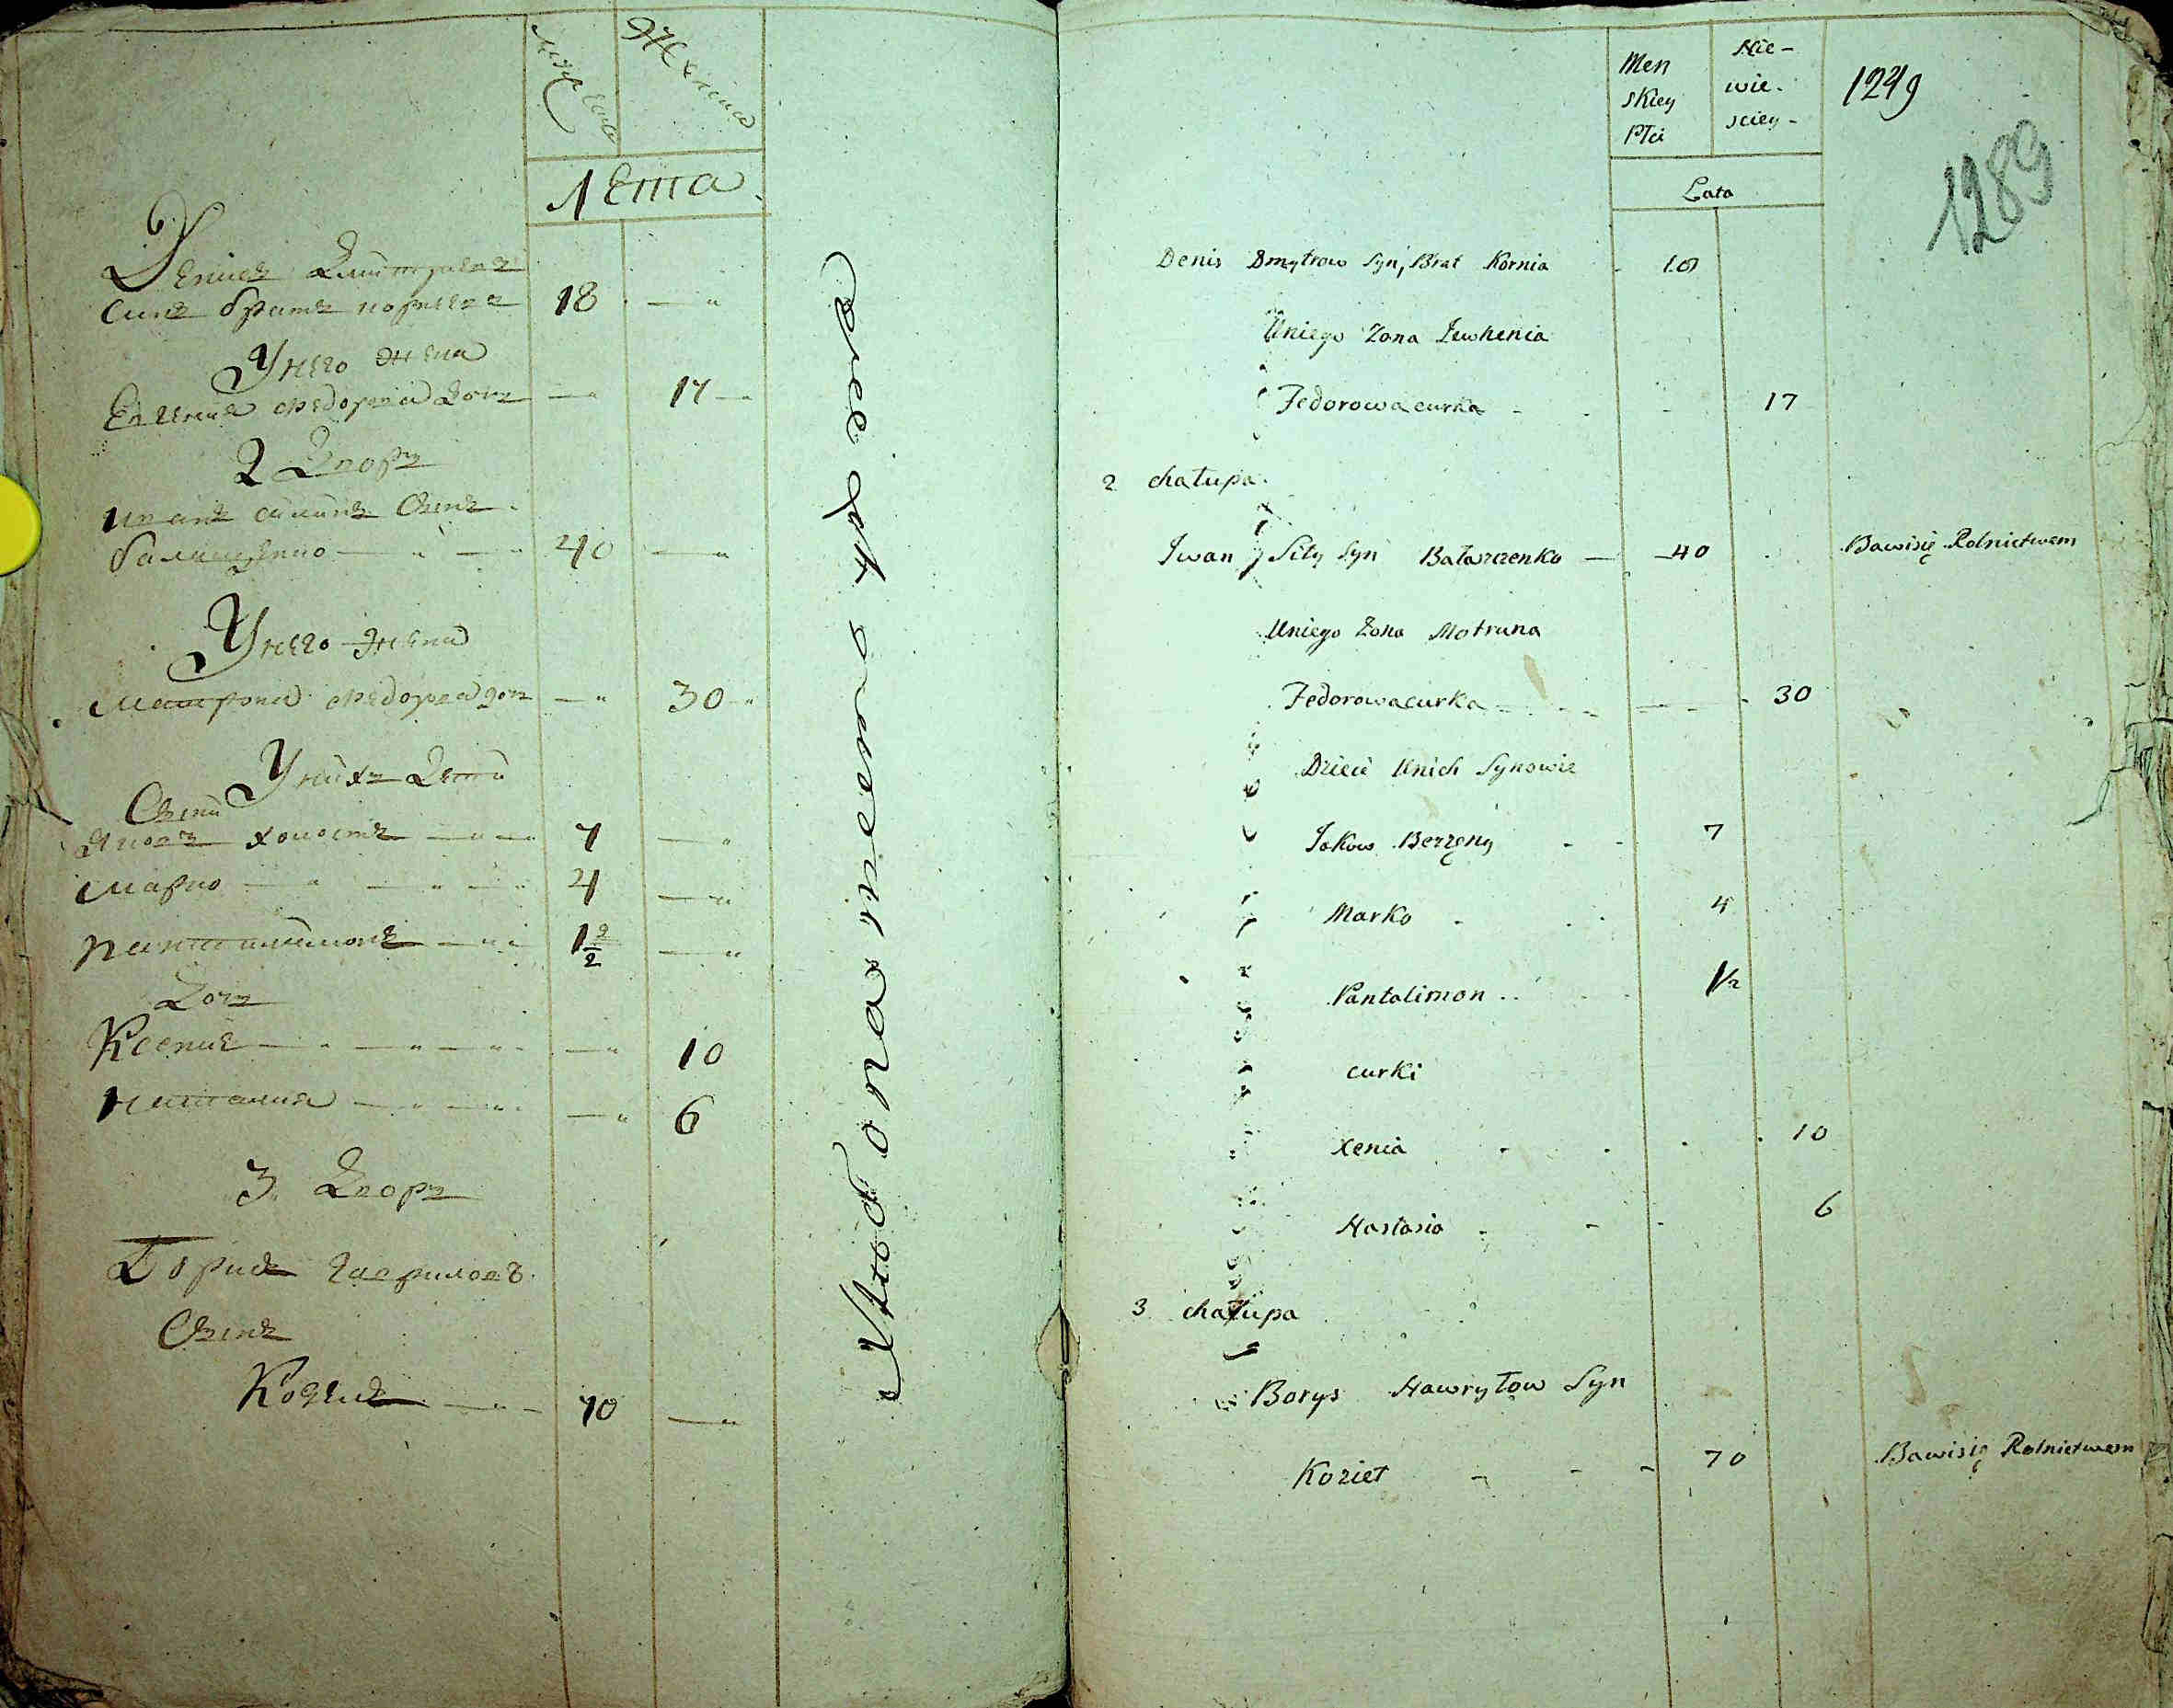 Мужеска
Женска
Лета
Денисъ Дмитриевъ
Синъ братъ корнеевъ 18
У него жена
Евгения Федорова дочъ 17
2 Дворъ
Иванъ силинъ Сынъ
балашенко 40
У него жена
Матрона Федорова дочъ 30
У нихъ Дети
Сыни
Яковъ холостъ 7
Марко 4
Пантилимонъ 1 1/2
Дочъ
Ксения 10
Наталия 6
3. Дворъ
Борисъ гавриловъ
Сынъ
Козелъ 70
Men Nie-
skiey wie-
Płci sciey-
1249
1289
Lata
Denis Dmytrow Syn, Brat Kornia 18
Uniego Zona Jewhenia
Fedorowa curka 17
2 chałupa.
Iwan Siły Syn Bałaszzenko 40 Bawisię Rolnictwem
Uniego Zona Motruna
Fedorowa curka 30
Dzieci Unich Synowie
Jakow Bezżeny 7
Marko 4
Pantalimon 1½
curki
Xenia 10
Nastasia 6
3 chałupa
Borys Hawryłow Syn
Kozieł 70 Bawisię Rolnictwem